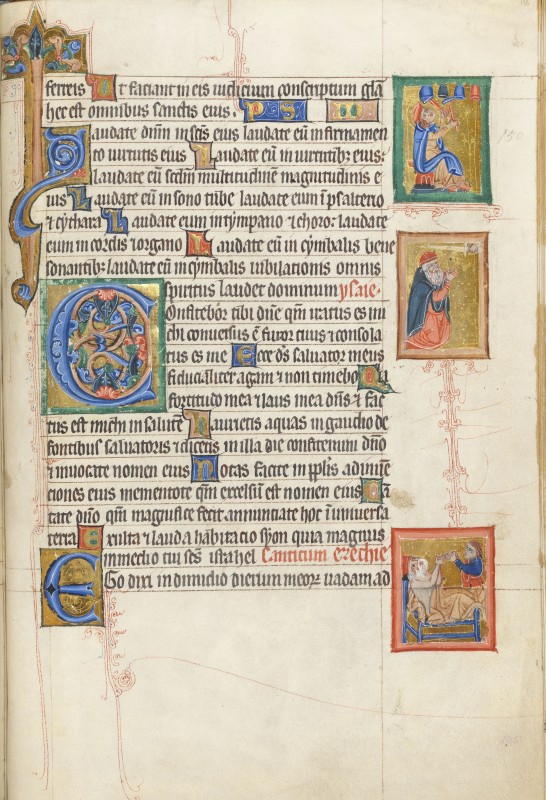 ferreis Ut faciant in eis iudicium conscriptum gła
hec est omnibus sanctis eius. PS
Laudate dñm in scīs eius laudate eū in firmamen
to uirtutis eius Laudate eū in uirtutib; eius:
laudate eū scđm multitudinē magnitudinis e
ius Laudate eū in sono tube laudate eum ī psalterio
⁊ cythara Laudate eum in tympano ⁊ choro: laudate
eum in cordis ⁊ organo Laudate eū in cymbalis bene
sonantib; laudate eū in cymbalis iubilationis omnis
spiritus laudet dominum ysaie.
Confitebor tibi dñe qm̄ iratus es mi
chi conuersus ē furor tuus ⁊ consola
tus es me Ecce ds̄ saluator meus
fiducialiter agam ⁊ non timebo Quia
fortitudo mea ⁊ laus mea dñs ⁊ fac
tus est michi in salutē Haurietis aquas in gaudio de
fontibus saluatoris ⁊ dicetis in illa die confitemini dño
⁊ inuocate nomen eius Notas facite in pp̄lis adinuē
ciones eius mementote qm̄ excelsū est nomen eius Can
tate dño qm̄ magnifice fecit annunciate hoc ī uniuersa
terra Exulta ⁊ lauda habitacio syon quia magnus
in medio tui scs̄ israhel Canticum ezechie
Ego dixi in dimidio dierum meor̄ uadam ad
150